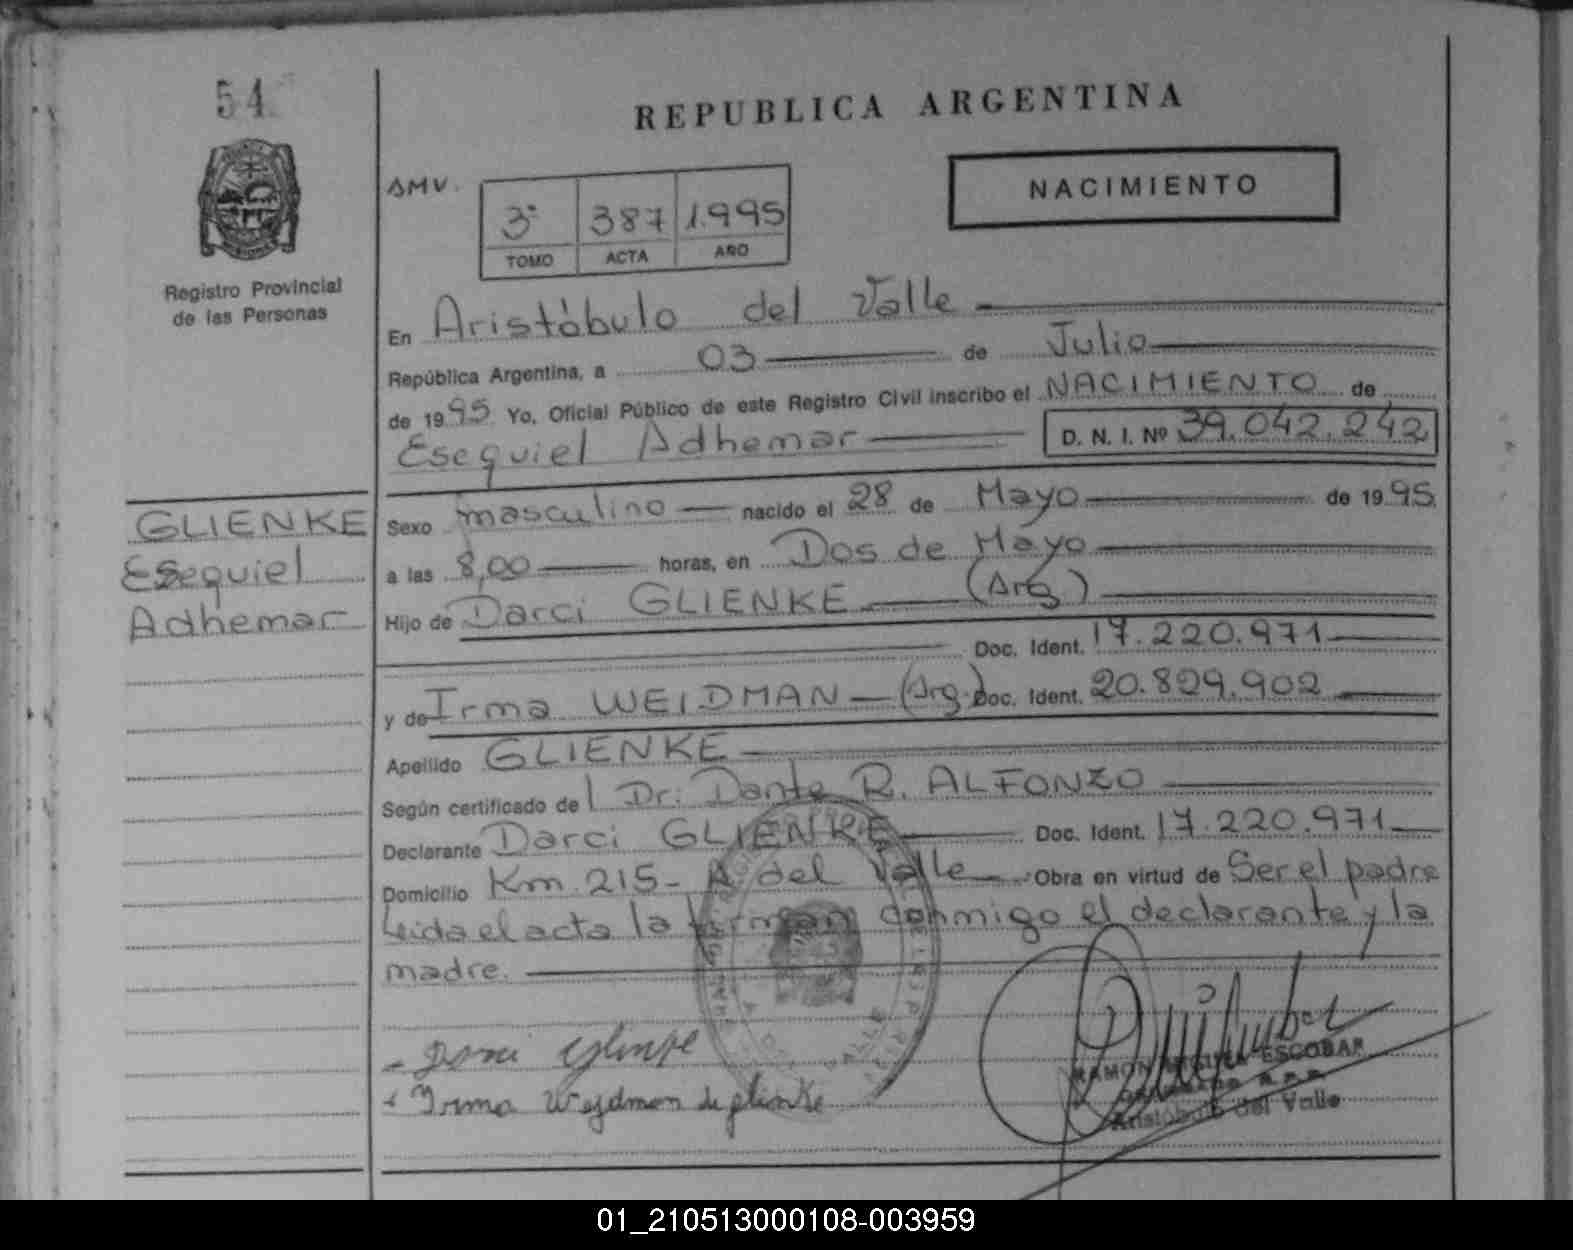 54
REPUBLICA ARGENTINA
Registro Provincial
de las Personas
AMV.
3º 387 1.995
TOMO ACTA AÑO
NACIMIENTO
En Aristóbulo del Valle
República Argentina, a 03 de Julio
de 1995 Yo, Oficial Público de este Registro Civil inscribo el NACIMIENTO de
Esequiel Adhemar D. N. I. Nº 39.042.242
GLIENKE
Esequiel
Adhemar
Sexo masculino nacido el 28 de Mayo de 1995
a las 8,00 horas, en Dos de Mayo
Hijo de Darci GLIENKE (Arg)
Doc. Ident. 17.220.971
y de Irma WEIDMAN (Arg.) Doc. Ident. 20.829.902
Apellido GLIENKE
Según certificado del Dr. Dante R. ALFONZO
Declarante Darci GLIENKE Doc. Ident. 17.220.971
Domicilio Km. 215- A. del Valle Obra en virtud de Ser el padre
Leida el acta la firman conmigo el declarante y la
madre.
Darci Glienke
Irma Wejdman de glienke
RAMON ESCOBAR
Aristóbulo del Valle
01_210513000108-003959